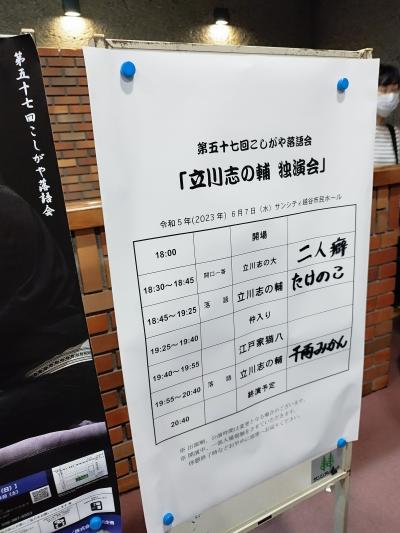 第五十七回こしがや落語会
第五十七回こしがや落語会
「立川志の輔 独演会」
令和5年(2023年) 6月7日（水）サンシティ越谷市民ホール
18:00 開場
18:30～18:45 開口一番 立川志の大 二人癖
18:45～19:25 落語 立川志の輔 たけのこ
19:25～19:40 仲入り
19:40～19:55 江戸家猫八
19:55～20:40 落語 立川志の輔 千両みかん
20:40 終演予定
※ 出演順、公演時間は変更となる場合がございます。